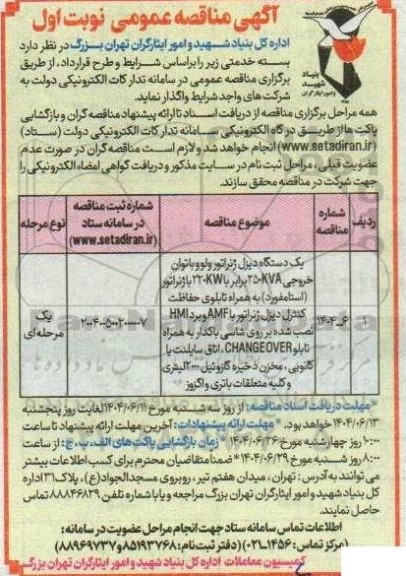 آگهی مناقصه عمومی نوبت اول
بنیاد شهید وامور ایثارگران
اداره کل بنیاد شهید و امور ایثارگران تهران بزرگ در نظر دارد
بسته خدمتی زیر را براساس شرایط و طرح قرارداد، از طریق
برگزاری مناقصه عمومی در سامانه تدارکات الکترونیکی دولت به
شرکت های واجد شرایط واگذار نماید.
همه مراحل برگزاری مناقصه از دریافت اسناد تا ارائه پیشنهاد مناقصه گران و بازگشایی
پاکت ها از طریق درگاه الکترونیکی سامانه تدارکات الکترونیکی دولت (ستاد)
(www.setadiran.ir) انجام خواهد شد و لازم است مناقصه گران در صورت عدم
عضویت قبلی، مراحل ثبت نام در سایت مذکور و دریافت گواهی امضاء الکترونیکی را
جهت شرکت در مناقصه محقق سازند.
ردیف | شماره مناقصه | موضوع مناقصه | شماره ثبت مناقصه در سامانه ستاد (www.setadiran.ir) | نوع مرحله
یک دستگاه دیزل ژنراتور ولوو با توان
خروجی ۲۵۰KVA برابر با ۲۲۰KW با ژنراتور
(استامفورد) به همراه تابلوی حفاظت
کنترل دیزل ژنراتور با AMF و برد HMI
۱ | ۱۴۰۴-۶ | نصب شده بر روی شاسی باکدار به همراه | یک مرحله ای
تابلو CHANGEOVER، اتاق سایلنت یا
کانوپی، مخزن ذخیره گازوئیل ۲۰۰۰ لیتری
و کلیه متعلقات باتری و اگزوز
*مهلت دریافت اسناد مناقصه: از روز سه شنبه مورخ ۱۴۰۴/۰۶/۱۱ لغایت روز پنجشنبه
۱۴۰۴/۰۶/۱۳ خواهد بود. * مهلت ارائه پیشنهادات: آخرین مهلت ارائه پیشنهاد تا ساعت
۱۰:۰۰ روز چهارشنبه مورخ ۱۴۰۴/۰۶/۲۶ * زمان بازگشایی پاکت های الف، ب، ج: از ساعت
۸:۰۰ روز شنبه مورخ ۱۴۰۴/۰۶/۲۹ * ضمنا متقاضیان محترم برای کسب اطلاعات بیشتر
می توانند به آدرس: تهران، میدان هفتم تیر، روبروی مسجدالجواد(ع)، پلاک ۳۱ اداره
کل بنیاد شهید و امور ایثارگران تهران بزرگ مراجعه و یا با شماره تلفن ۸۸۸۴۶۸۲۹ تماس
حاصل نمایند.
اطلاعات تماس سامانه ستاد جهت انجام مراحل عضویت در سامانه:
(مرکز تماس: ۱۴۵۶-۰۲۱) (دفتر ثبت نام: ۸۵۱۹۳۷۶۸ و ۸۸۹۶۹۷۳۷)
کمیسیون معاملات اداره کل بنیاد شهید و امور ایثارگران تهران بزرگ